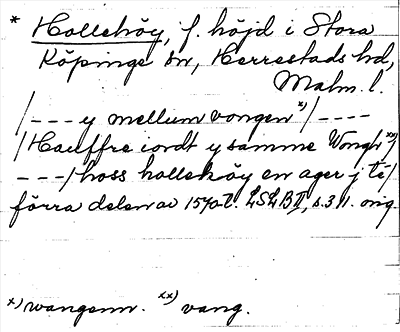 * Hollehöy, f. höjd i Stora
Köpinge sn, Herrestads hd,
Malm. l.
/--- y mellum vongen x)/----
/Hauffre iordt y samme Wongh xx)/
---/hoss hollehöy en ager j tij
förra delen av 1570-t. LSLB II, s. 311. orig.
x) wangenn. xx) vang.